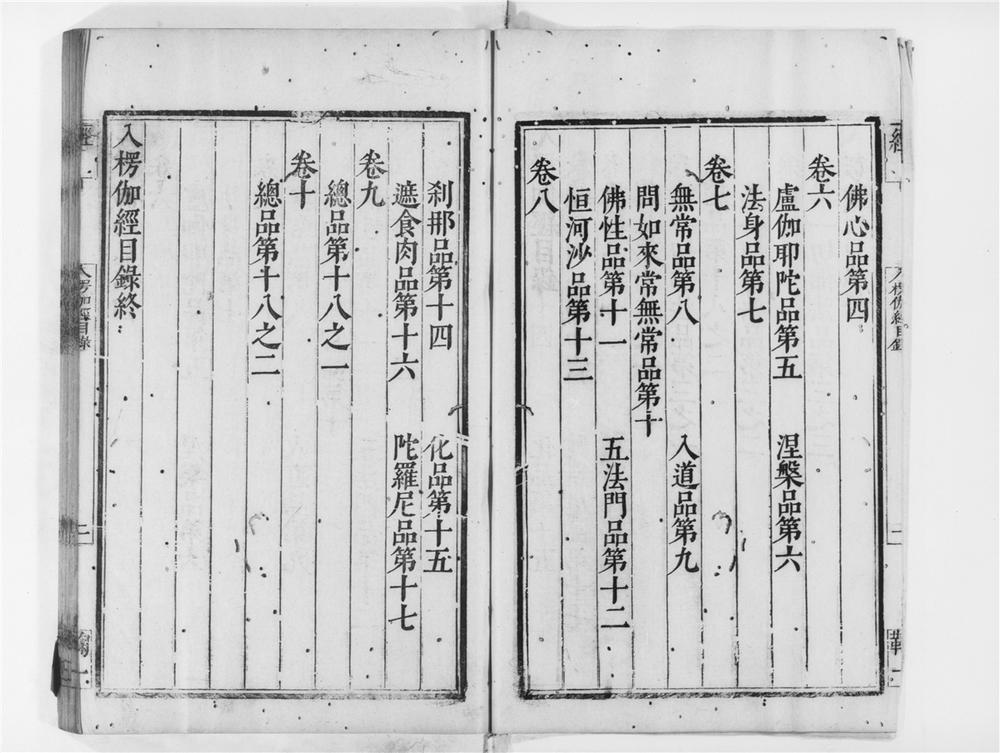 佛心品第四
卷六
盧伽耶陀品第五　涅槃品第六
法身品第七
卷七
無常品第八　入道品第九
問如來常無常品第十
佛性品第十一　五法門品第十二
恒河沙品第十三
卷八
刹那品第十四　化品第十五
遮食肉品第十六　陀羅尼品第十七
卷九
總品第十八之一
卷十
總品第十八之二
入楞伽經目錄終
入楞伽經目錄
二
入楞伽經目錄
二